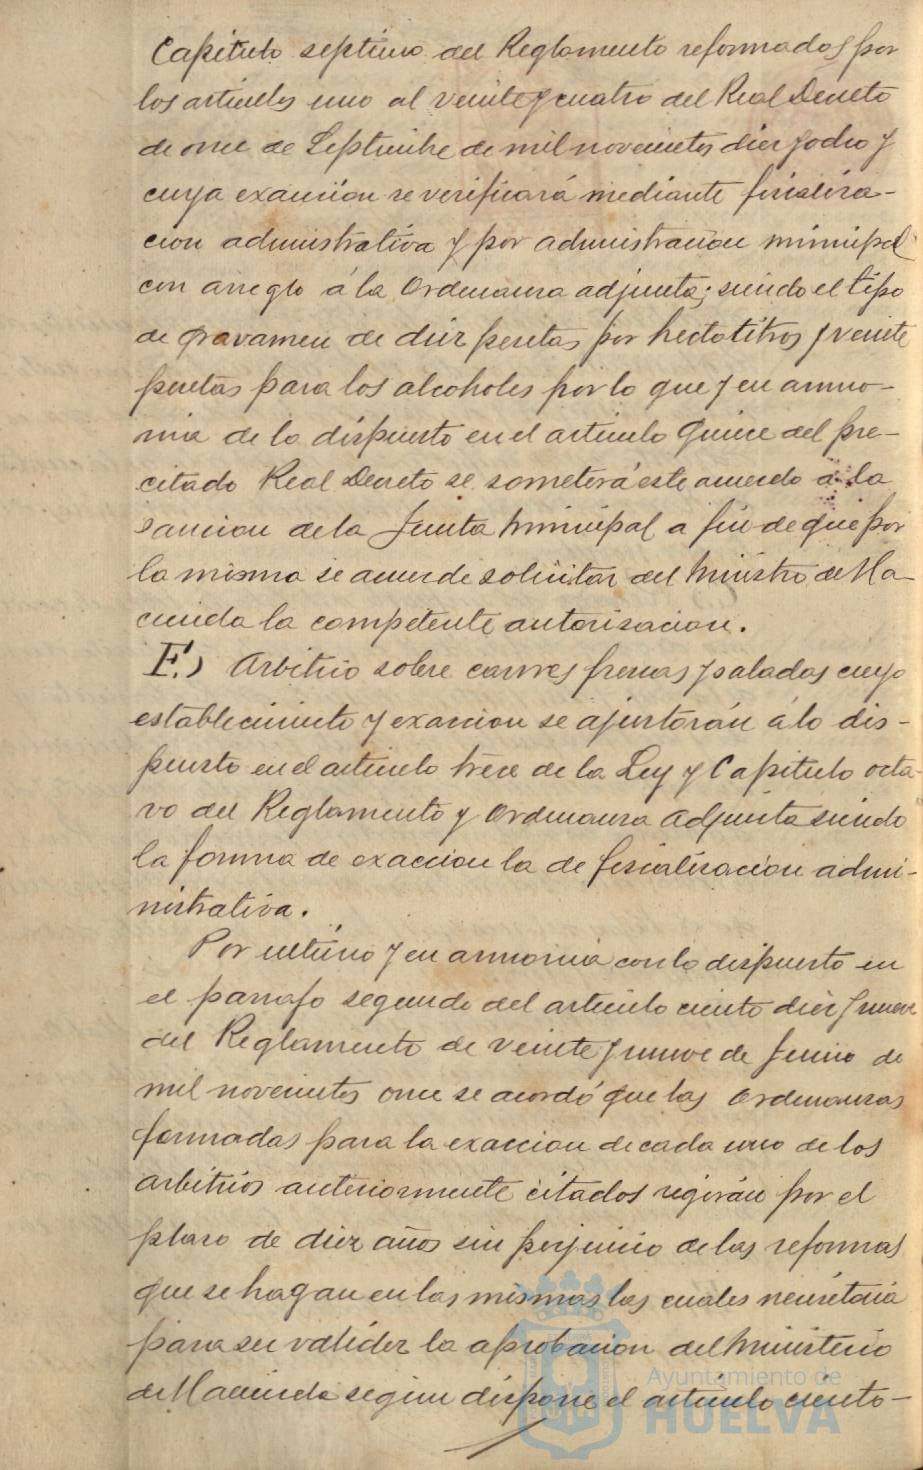 Capitulo septimo del Reglamento reformados por
los articulos uno al veinte y cuatro del Real Decreto
de once de Septiembre de mil novecientos diez y ocho y
cuya exaccion se verificará mediante fiscaliza-
cion administrativa y por administracion municipal
con arreglo á la Ordenanza adjunta; siendo el tipo
de gravamen de diez pesetas por hectolitros y veinte
pesetas para los alcoholes por lo que y en armo-
nia de lo dispuesto en el articulo quince del pre-
citado Real Decreto se someterá este acuerdo a la
sancion de la Junta Municipal a fin de que por
la misma se acuerde solicitar del Ministro de Ha-
cienda la competente autorizacion.
F.) Arbitrio sobre carnes frescas y saladas cuyo
establecimiento y exaccion se ajustarán á lo dis-
puesto en el articulo trece de la Ley y Capitulo octa-
vo del Reglamento y Ordenanza adjunta siendo
la forma de exaccion la de fiscalizacion admi-
nistrativa.
Por ultimo y en armonia con lo dispuesto en
el parrafo segundo del articulo ciento diez y nueve
del Reglamento de veinte y nueve de Junio de
mil novecientos once se acordó que las Ordenanzas
formadas para la exaccion de cada uno de los
arbitrios anteriormente citados regirán por el
plazo de diez años sin perjuicio de las reformas
que se hagan en las mismas las cuales necesitaria
para su validez la aprobacion del Ministerio
de Hacienda segun dispone el articulo ciento-
Ayuntamiento de
HUELVA